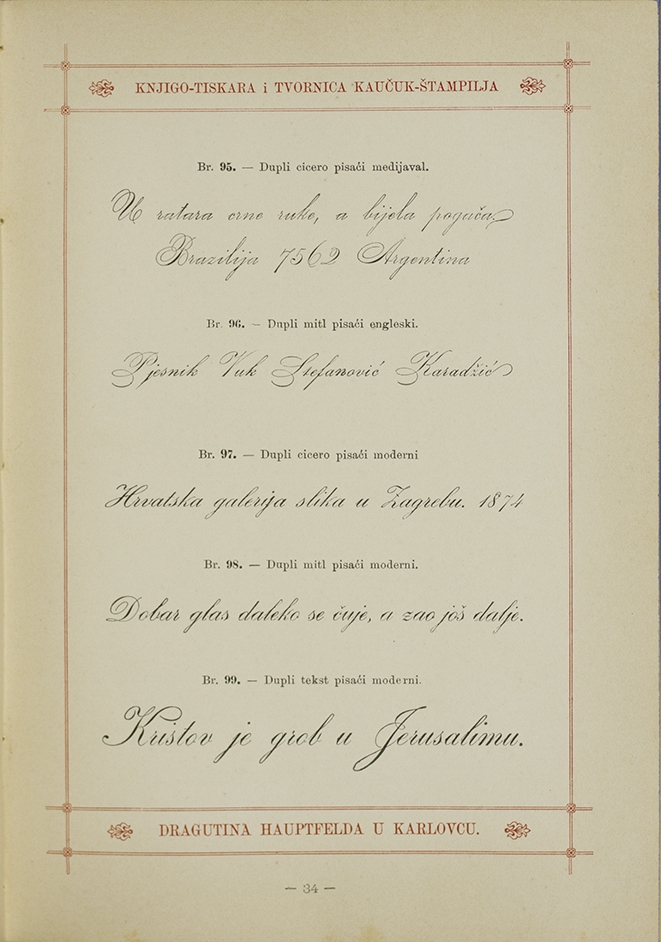 KNJIGO-TISKARA i TVORNICA KAUČUK-ŠTAMPILJA
Br. 95. — Dupli cicero pisaći medijaval.
U ratara crne ruke, a bijela pogača,
Brazilija 7562 Argentina
Br. 96. — Dupli mitl pisaći engleski.
Pjesnik Vuk Stefanović Karadžić
Br. 97. — Dupli cicero pisaći moderni
Hrvatska galerija slika u Zagrebu. 1874
Br. 98. — Dupli mitl pisaći moderni.
Dobar glas daleko se čuje, a zao još dalje.
Br. 99. — Dupli tekst pisaći moderni.
Kristov je grob u Jerusalimu.
DRAGUTINA HAUPTFELDA U KARLOVCU.
— 34 —